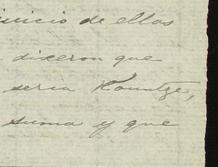 juicio de ellos
dixeron que
seria Kountze,
suma y que